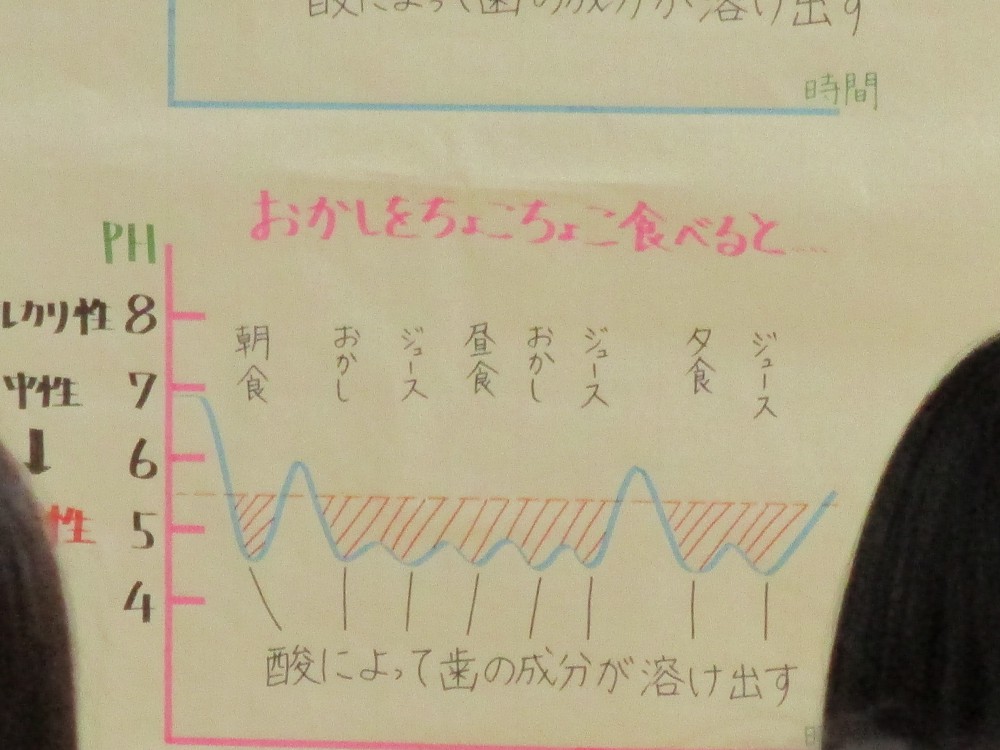 酸によって歯の成分が溶け出す
時間
おかしをちょこちょこ食べると…
PH
ルカリ性 8
朝食 おかし ジュース 昼食 おかし ジュース 夕食 ジュース
中性 7
↓ 6
性 5
4
酸によって歯の成分が溶け出す